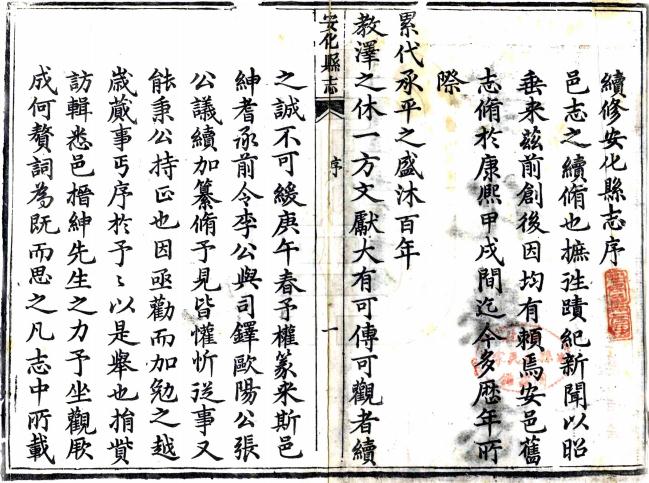 續修安化縣志序
邑志之續脩也摭往蹟紀新聞以昭
垂来茲前創後因均有賴焉安邑舊
志脩於康熙甲戌間迄今多歴年所
際
累代承平之盛沐百年
教澤之休一方文獻大有可傳可觀者續
安化縣志
序
一
之誠不可緩庚午春予權篆来斯邑
紳耆承前令李公與司鐸歐陽公張
公議續加纂脩予見皆懽忻從事又
能秉公持正也因亟勸而加勉之越
歲蕆事丐序於予〻以是舉也捐貲
訪輯悉邑搢紳先生之力予坐觀厥
成何贅詞為既而思之凡志中所載